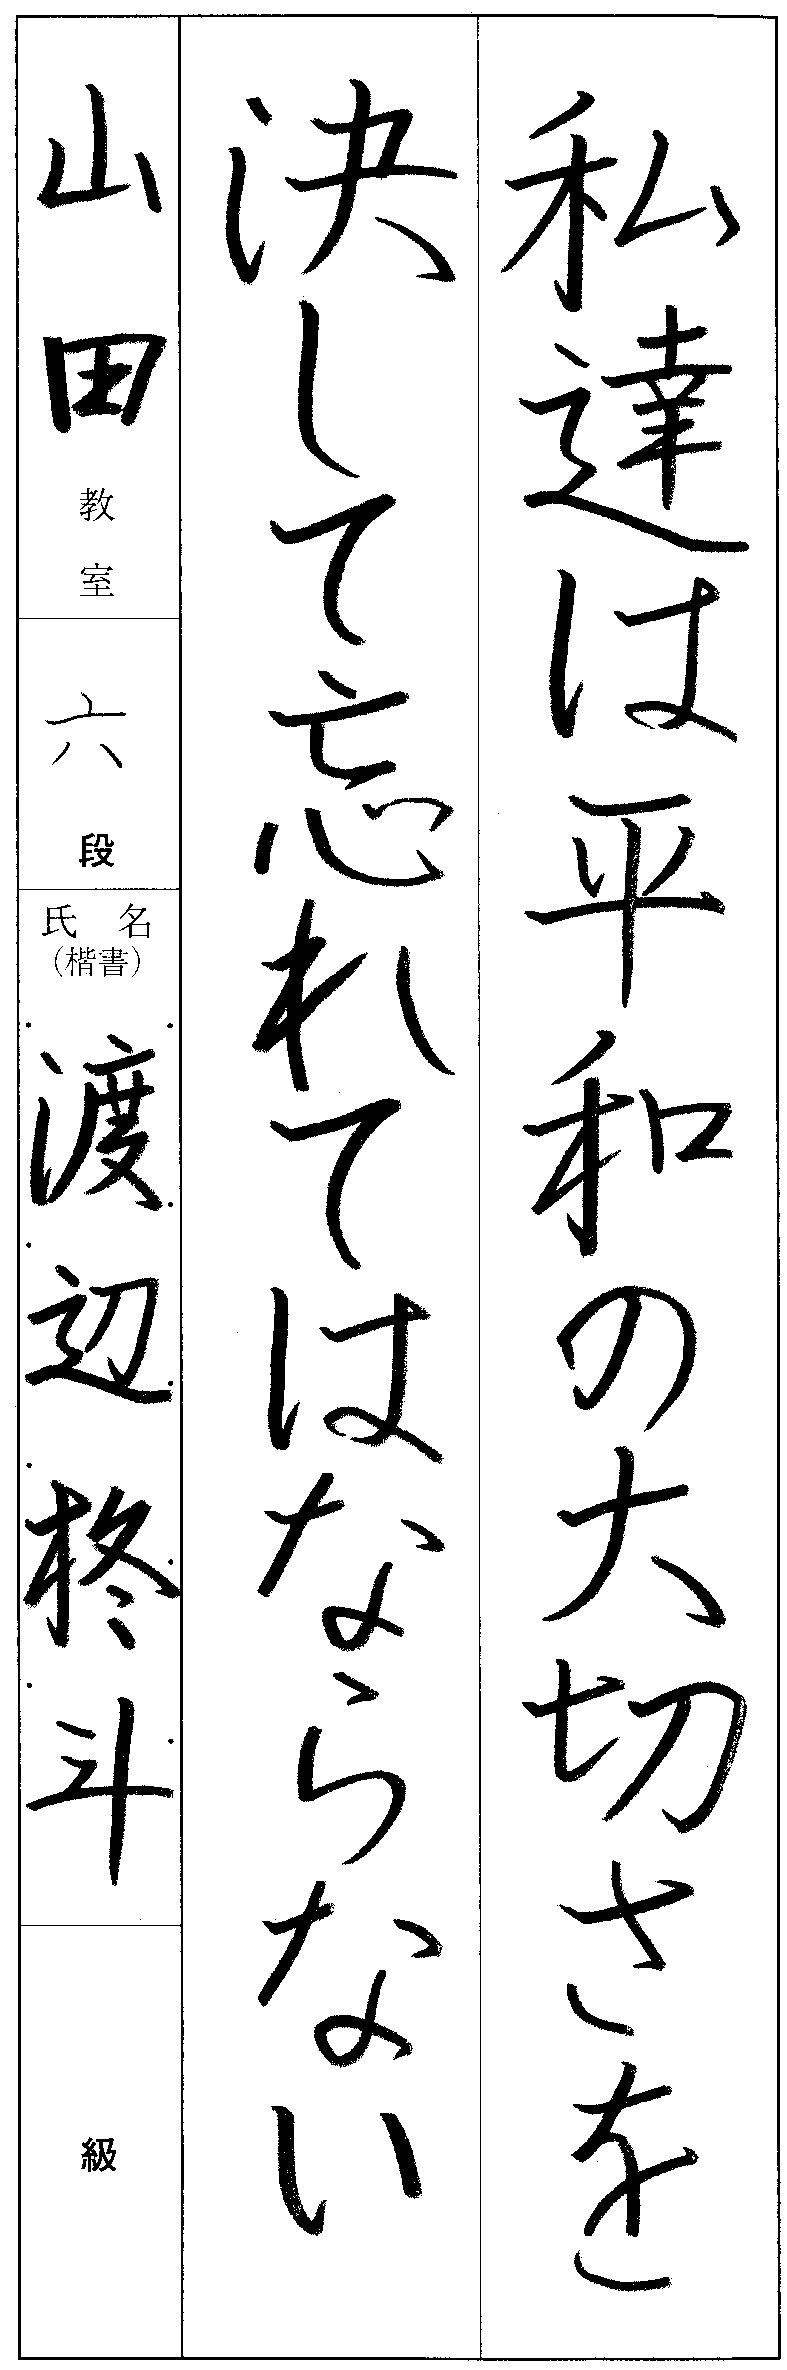 私達は平和の大切さを
決して忘れてはならない
山田教室
六段
氏名
(楷書)
渡辺柊斗
級